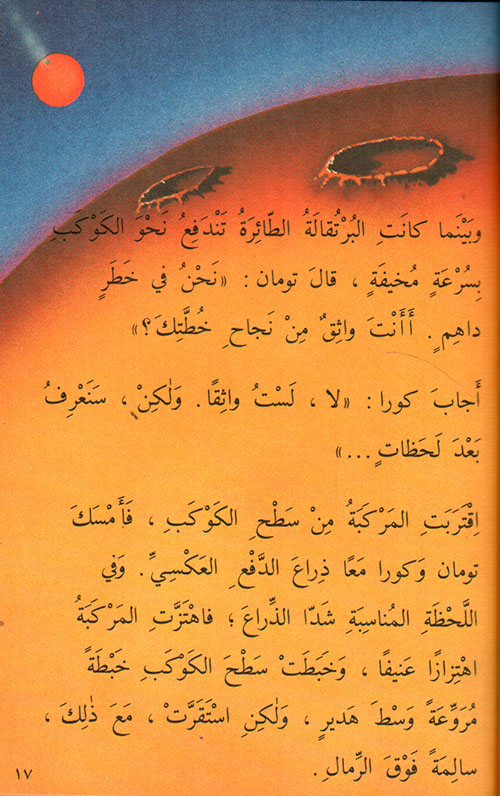 وبَيْنَما كانَتِ البُرْتُقالَةُ الطّائِرَةُ تَنْدَفِعُ نَحْوَ الكَوْكَبِ
بِسُرْعَةٍ مُخيفَةٍ ، قالَ تومان : «نَحْنُ في خَطَرٍ
داهِمٍ. أَأَنْتَ واثِقٌ مِنْ نَجاحِ خُطَّتِكَ؟»
أَجابَ كورا : «لا ، لَسْتُ واثِقًا. وَلٰكِنْ ، سَنَعْرِفُ
بَعْدَ لَحَظاتٍ...»
اِقْتَرَبَتِ المَرْكَبَةُ مِنْ سَطْحِ الكَوْكَبِ ، فَأَمْسَكَ
تومان وَكورا مَعًا ذِراعَ الدَّفْعِ العَكْسِيِّ. وَفي
اللَّحْظَةِ المُناسِبَةِ شَدّا الذِّراعَ ؛ فاهْتَزَّتِ المَرْكَبَةُ
اهْتِزازًا عَنيفًا ، وَخَبَطَتْ سَطْحَ الكَوْكَبِ خَبْطَةً
مُرَوِّعَةً وَسْطَ هَديرٍ ، وَلٰكِنِ اسْتَقَرَّتْ ، مَعَ ذٰلِكَ ،
سالِمَةً فَوْقَ الرِّمالِ.
١٧